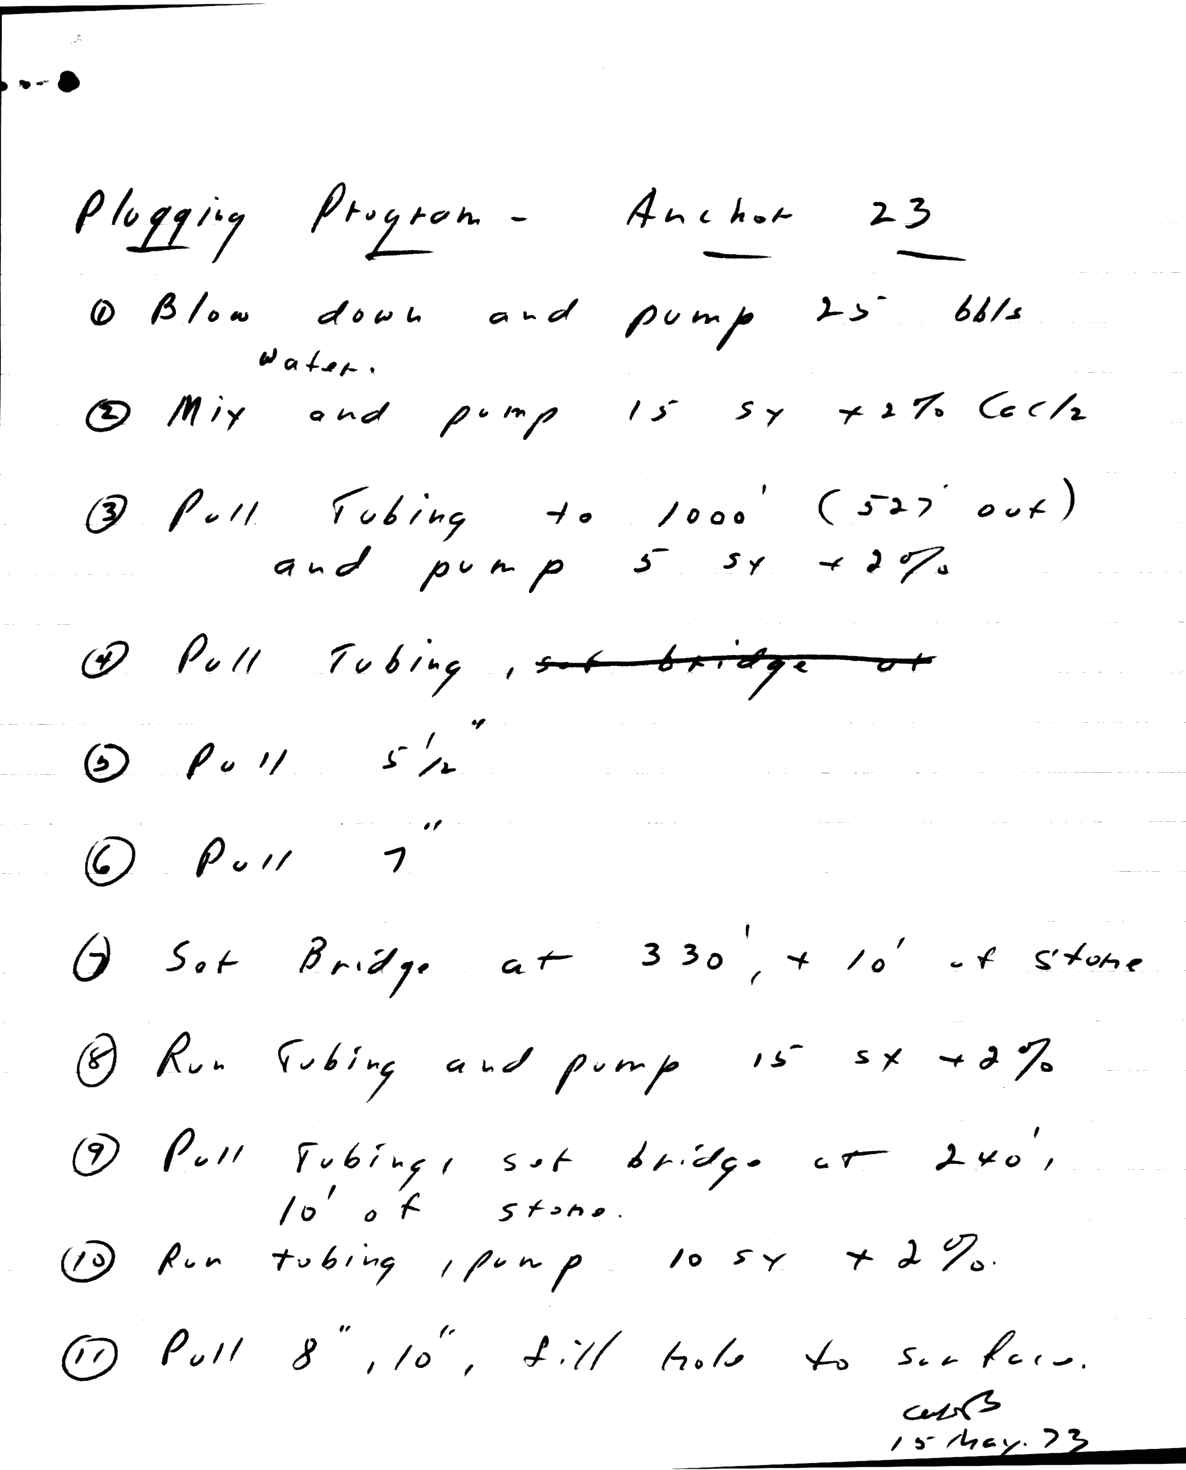 Plugging Program - Anchor 23
① Blow down and pump 25 bbls
water.
② Mix and pump 15 sx + 2% CaCl2
③ Pull Tubing to 1000' (527' out)
and pump 5 sx + 2%
④ Pull Tubing, set bridge at
⑤ Pull 5 1/2"
⑥ Pull 7"
⑦ Set Bridge at 330', + 10' of stone
⑧ Run Tubing and pump 15 sx + 2%
⑨ Pull Tubing, set bridge at 240',
10' of stone.
⑩ Run tubing, pump 10 sx + 2%.
⑪ Pull 8", 10", fill hole to surface.
15 May. 73